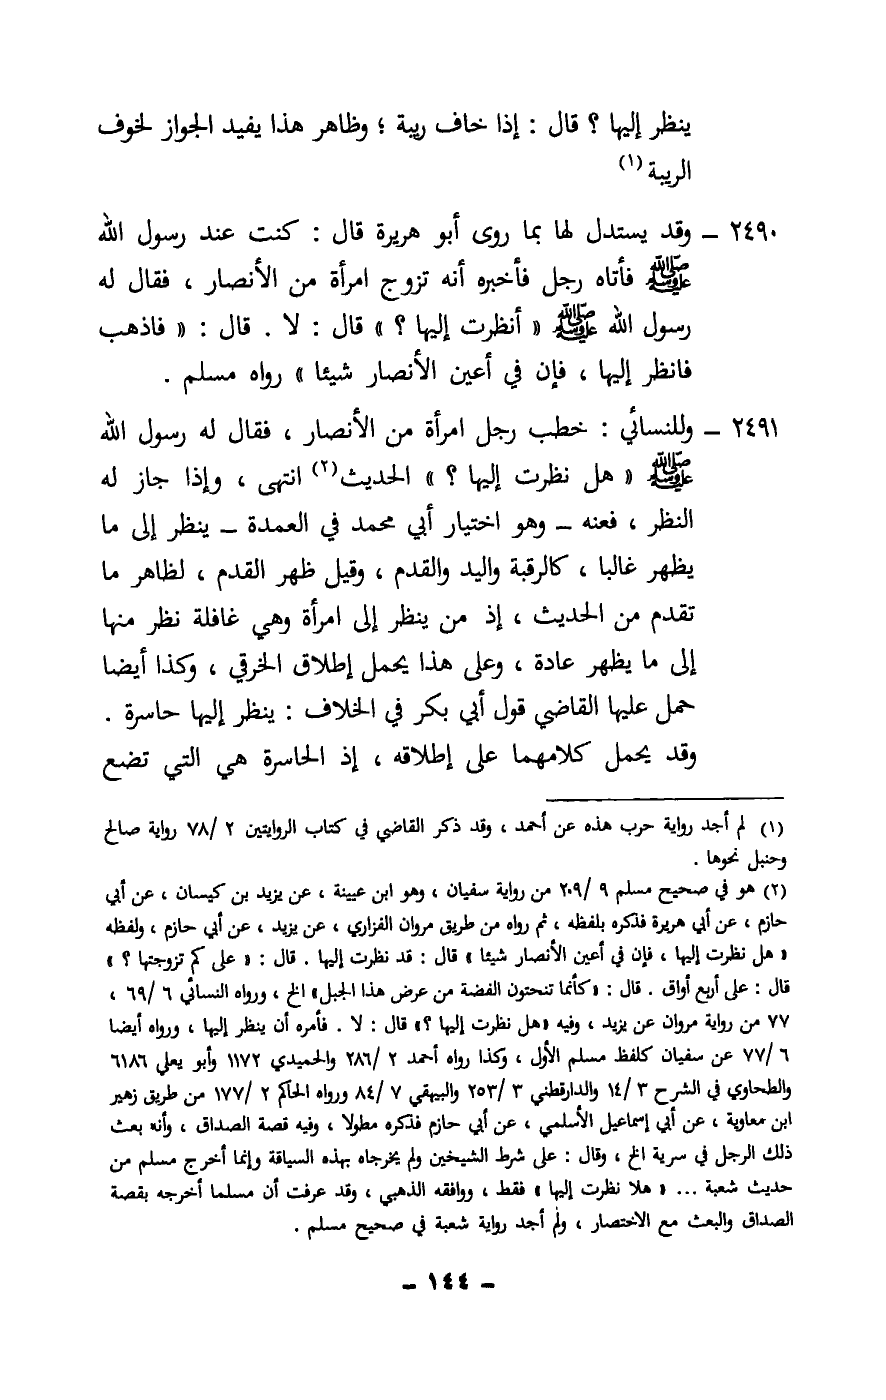 ينظر إليها ؟ قال : إذا خاف ريبة ؛ وظاهر هذا يفيد الجواز لخوف
الريبة (١)
٢٤٩٠ ــ وقد يستدل لها بما روى أبو هريرة قال : كنت عند رسول الله
ﷺ فأتاه رجل فأخبره أنه تزوج امرأة من الأنصار ، فقال له
رسول الله ﷺ « أنظرت إليها ؟ » قال : لا . قال : « فاذهب
فانظر إليها ، فإن في أعين الأنصار شيئا » رواه مسلم .
٢٤٩١ ــ وللنسائي : خطب رجل امرأة من الأنصار ، فقال له رسول الله
ﷺ « هل نظرت إليها ؟ » الحديث(٢) انتهى ، وإذا جاز له
النظر ، فعنه ــ وهو اختيار أبي محمد في العمدة ــ ينظر إلى ما
يظهر غالبا ، كالرقبة واليد والقدم ، وقيل ظهر القدم ، لظاهر ما
تقدم من الحديث ، إذ من ينظر إلى امرأة وهي غافلة نظر منها
إلى ما يظهر عادة ، وعلى هذا يحمل إطلاق الخرقي ، وكذا أيضا
حمل عليها القاضي قول أبي بكر في الخلاف : ينظر إليها حاسرة .
وقد يحمل كلامهما على إطلاقه ، إذ الحاسرة هي التي تضع
(١) لم أجد رواية حرب هذه عن أحمد ، وقد ذكر القاضي في كتاب الروايتين ٢ /٧٨ رواية صالح
وحنبل نحوها .
(٢) هو في صحيح مسلم ٩ /٢٠٩ من رواية سفيان ، وهو ابن عيينة ، عن يزيد بن كيسان ، عن أبي
حازم ، عن أبي هريرة فذكره بلفظه ، ثم رواه من طريق مروان الفزاري ، عن يزيد ، عن أبي حازم ، ولفظه
« هل نظرت إليها ، فإن في أعين الأنصار شيئا » قال : قد نظرت إليها . قال : « على كم تزوجتها ؟ »
قال : على أربع أواق . قال : «كأنما تنحتون الفضة من عرض هذا الجبل» الخ ، ورواه النسائي ٦ /٦٩ ،
٧٧ من رواية مروان عن يزيد ، وفيه «هل نظرت إليها ؟» قال : لا . فأمره أن ينظر إليها ، ورواه أيضا
٦ /٧٧ عن سفيان كلفظ مسلم الأول ، وكذا رواه أحمد ٢ /٢٨٦ والحميدي ١١٧٢ وأبو يعلى ٦١٨٦
والطحاوي في الشرح ٣ /١٤ والدارقطني ٣ /٢٥٣ والبيهقي ٧ /٨٤ ورواه الحاكم ٢ /١٧٧ من طريق زهير
ابن معاوية ، عن أبي إسماعيل الأسلمي ، عن أبي حازم فذكره مطولا ، وفيه قصة الصداق ، وأنه بعث
ذلك الرجل في سرية الخ ، وقال : على شرط الشيخين ولم يخرجاه بهذه السياقة وإنما أخرج مسلم من
حديث شعبة ... « هلا نظرت إليها » فقط ، ووافقه الذهبي ، وقد عرفت أن مسلما أخرجه بقصة
الصداق والبعث مع الاختصار ، ولم أجد رواية شعبة في صحيح مسلم .
ــ ١٤٤ ــ